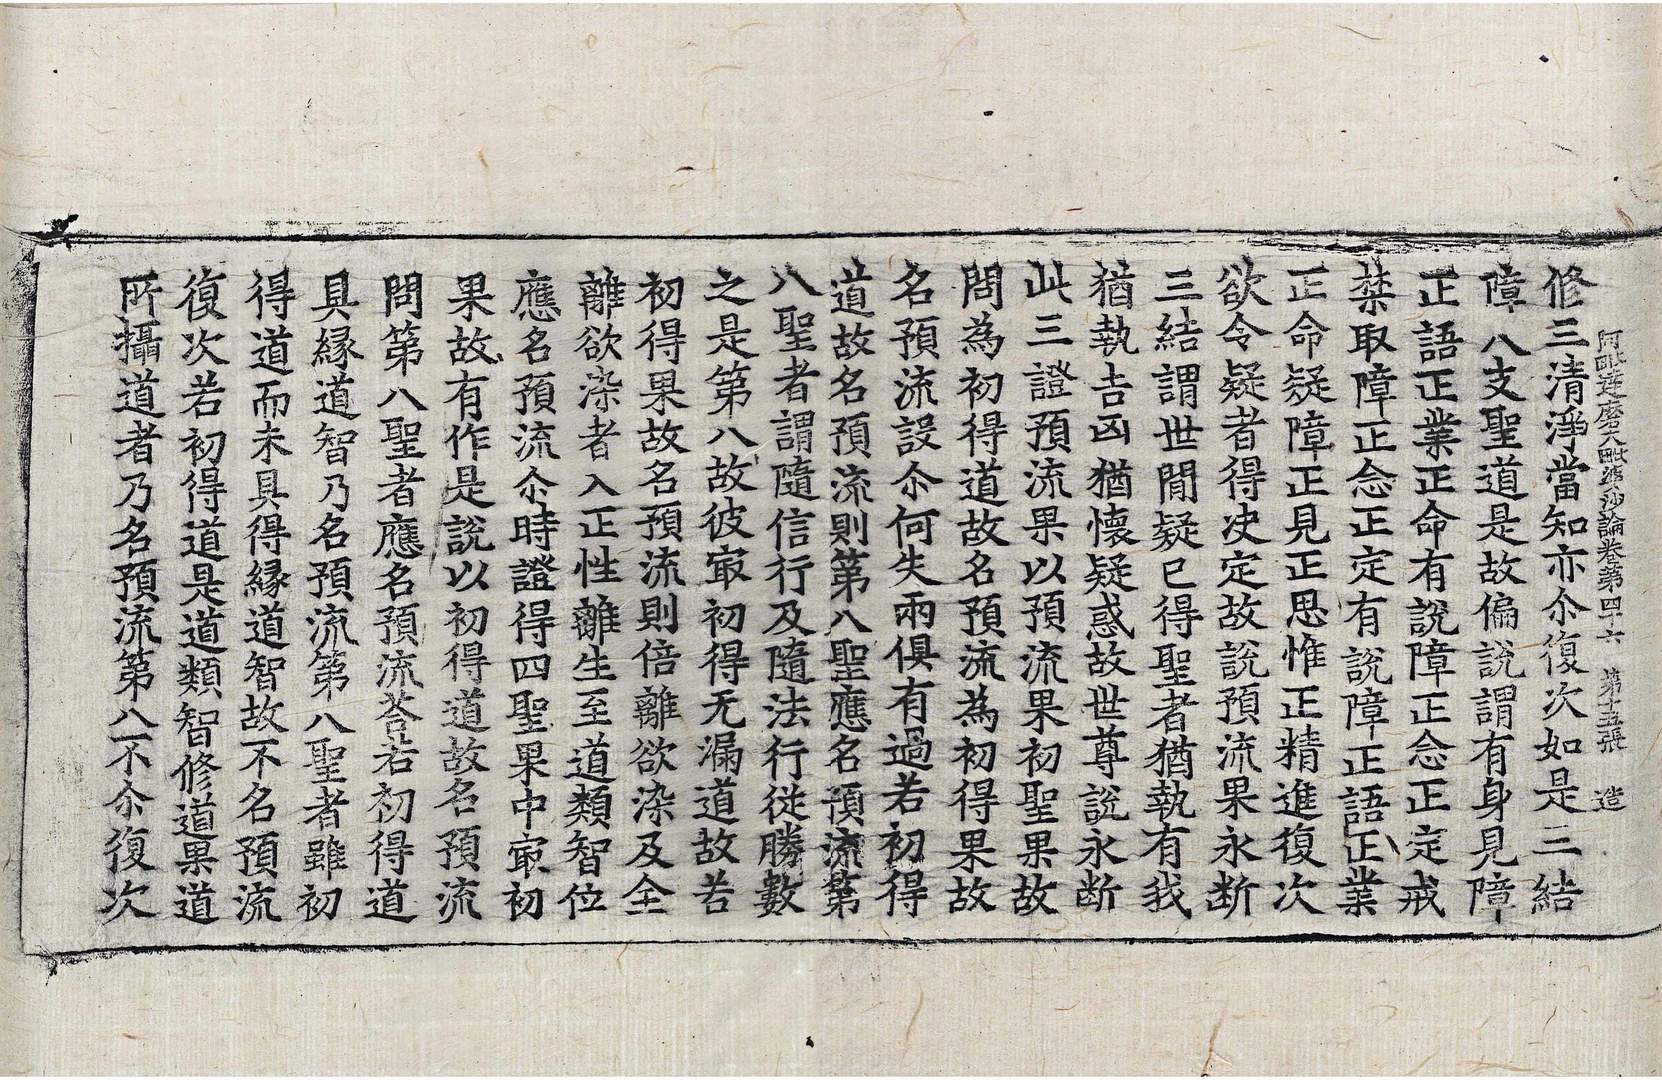 阿毗達磨大毗婆沙論卷第四十六　第十五張　造
修三清淨當知亦尒復次如是三結
障八支聖道是故偏說謂有身見障
正語正業正命有說障正念正定戒
禁取障正念正定有說障正語正業
正命疑障正見正思惟正精進復次
欲令疑者得決定故說預流果永断
三結謂世間疑已得聖者猶執有我
猶執吉凶猶懷疑惑故世尊說永断
此三證預流果以預流果初聖果故
問為初得道故名預流為初得果故
名預流設尒何失兩俱有過若初得
道故名預流則第八聖應名預流第
八聖者謂隨信行及隨法行從勝數
之是第八故彼㝡初得无漏道故若
初得果故名預流則倍離欲染及全
離欲染者入正性離生至道類智位
應名預流尒時證得四聖果中㝡初
果故有作是說以初得道故名預流
問第八聖者應名預流荅若初得道
具縁道智乃名預流第八聖者雖初
得道而未具得縁道智故不名預流
復次若初得道是道類智修道果道
所攝道者乃名預流第八不尒復次